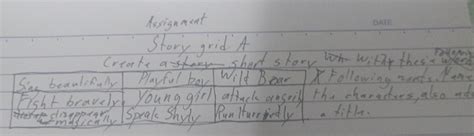 Assignment
DATE
Story grid A
Create a story short story with these words
Sing beautifully Playful boy Wild Bear X Following words. Name
Fight bravely Young girl attack angrily the characters, also add
disappear magically Speak Shyly Run hurriedly a title.